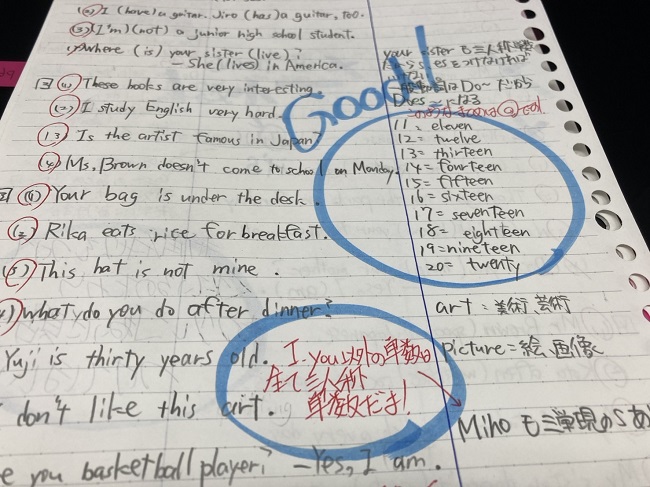 (2) I (have) a guitar. Jiro (has) a guitar, too.
(3) (I'm) (not) a junior high school student.
Where (is) your sister (live)?
— She (lives) in America.
(1) These books are very interesting.
(2) I study English very hard.
(3) Is the artist famous in Japan?
(4) Ms. Brown doesn't come to school on Monday.
(1) Your bag is under the desk.
(2) Rika eats rice for breakfast.
(3) This hat is not mine.
What do you do after dinner?
Yuji is thirty years old.
don't like this art.
you basketball player? — Yes, I am.
Good!
your sister も三人称単数
Do〜だから
Does
11 = eleven
12 = twelve
13 = thirteen
14 = fourteen
15 = fifteen
16 = sixteen
17 = seventeen
18 = eighteen
19 = nineteen
20 = twenty
art : 美術 芸術
Picture = 絵、画像
I, you以外の単数は
全て三人称
単数だよ!
Miho も三単現のsあ